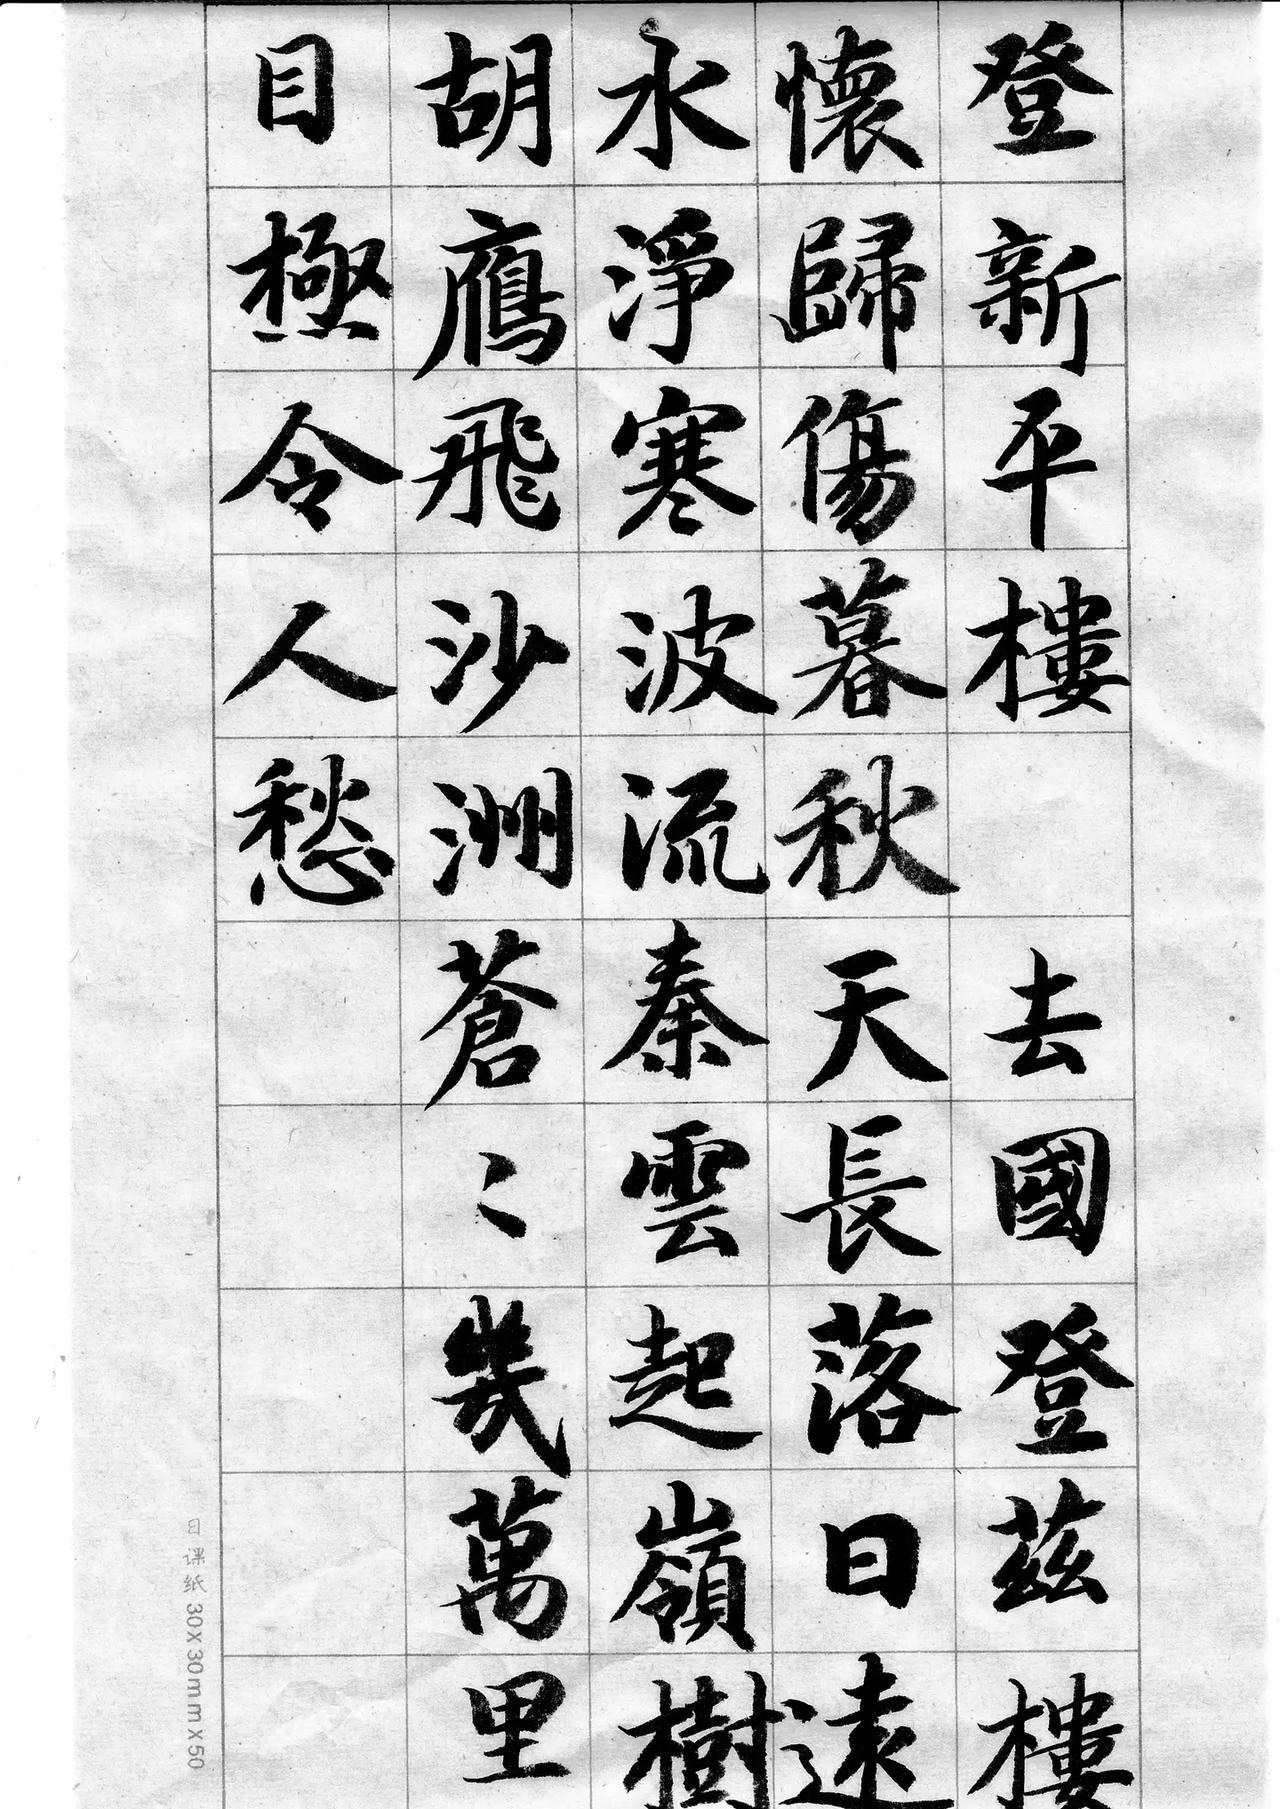 登新平樓 去國登茲樓
懷歸傷暮秋天長落日遠
水淨寒波流秦雲起嶺樹
胡鴈飛沙洲蒼〻幾萬里
目極令人愁
日课纸 30x30mmx50